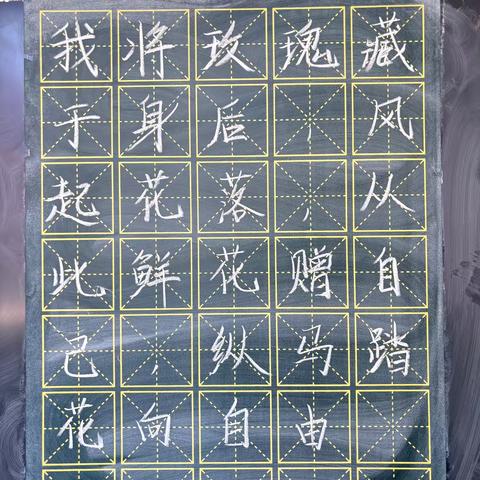 我将玫瑰藏
于身后，风
起花落，从
此鲜花赠自
己，纵马踏
花向自由